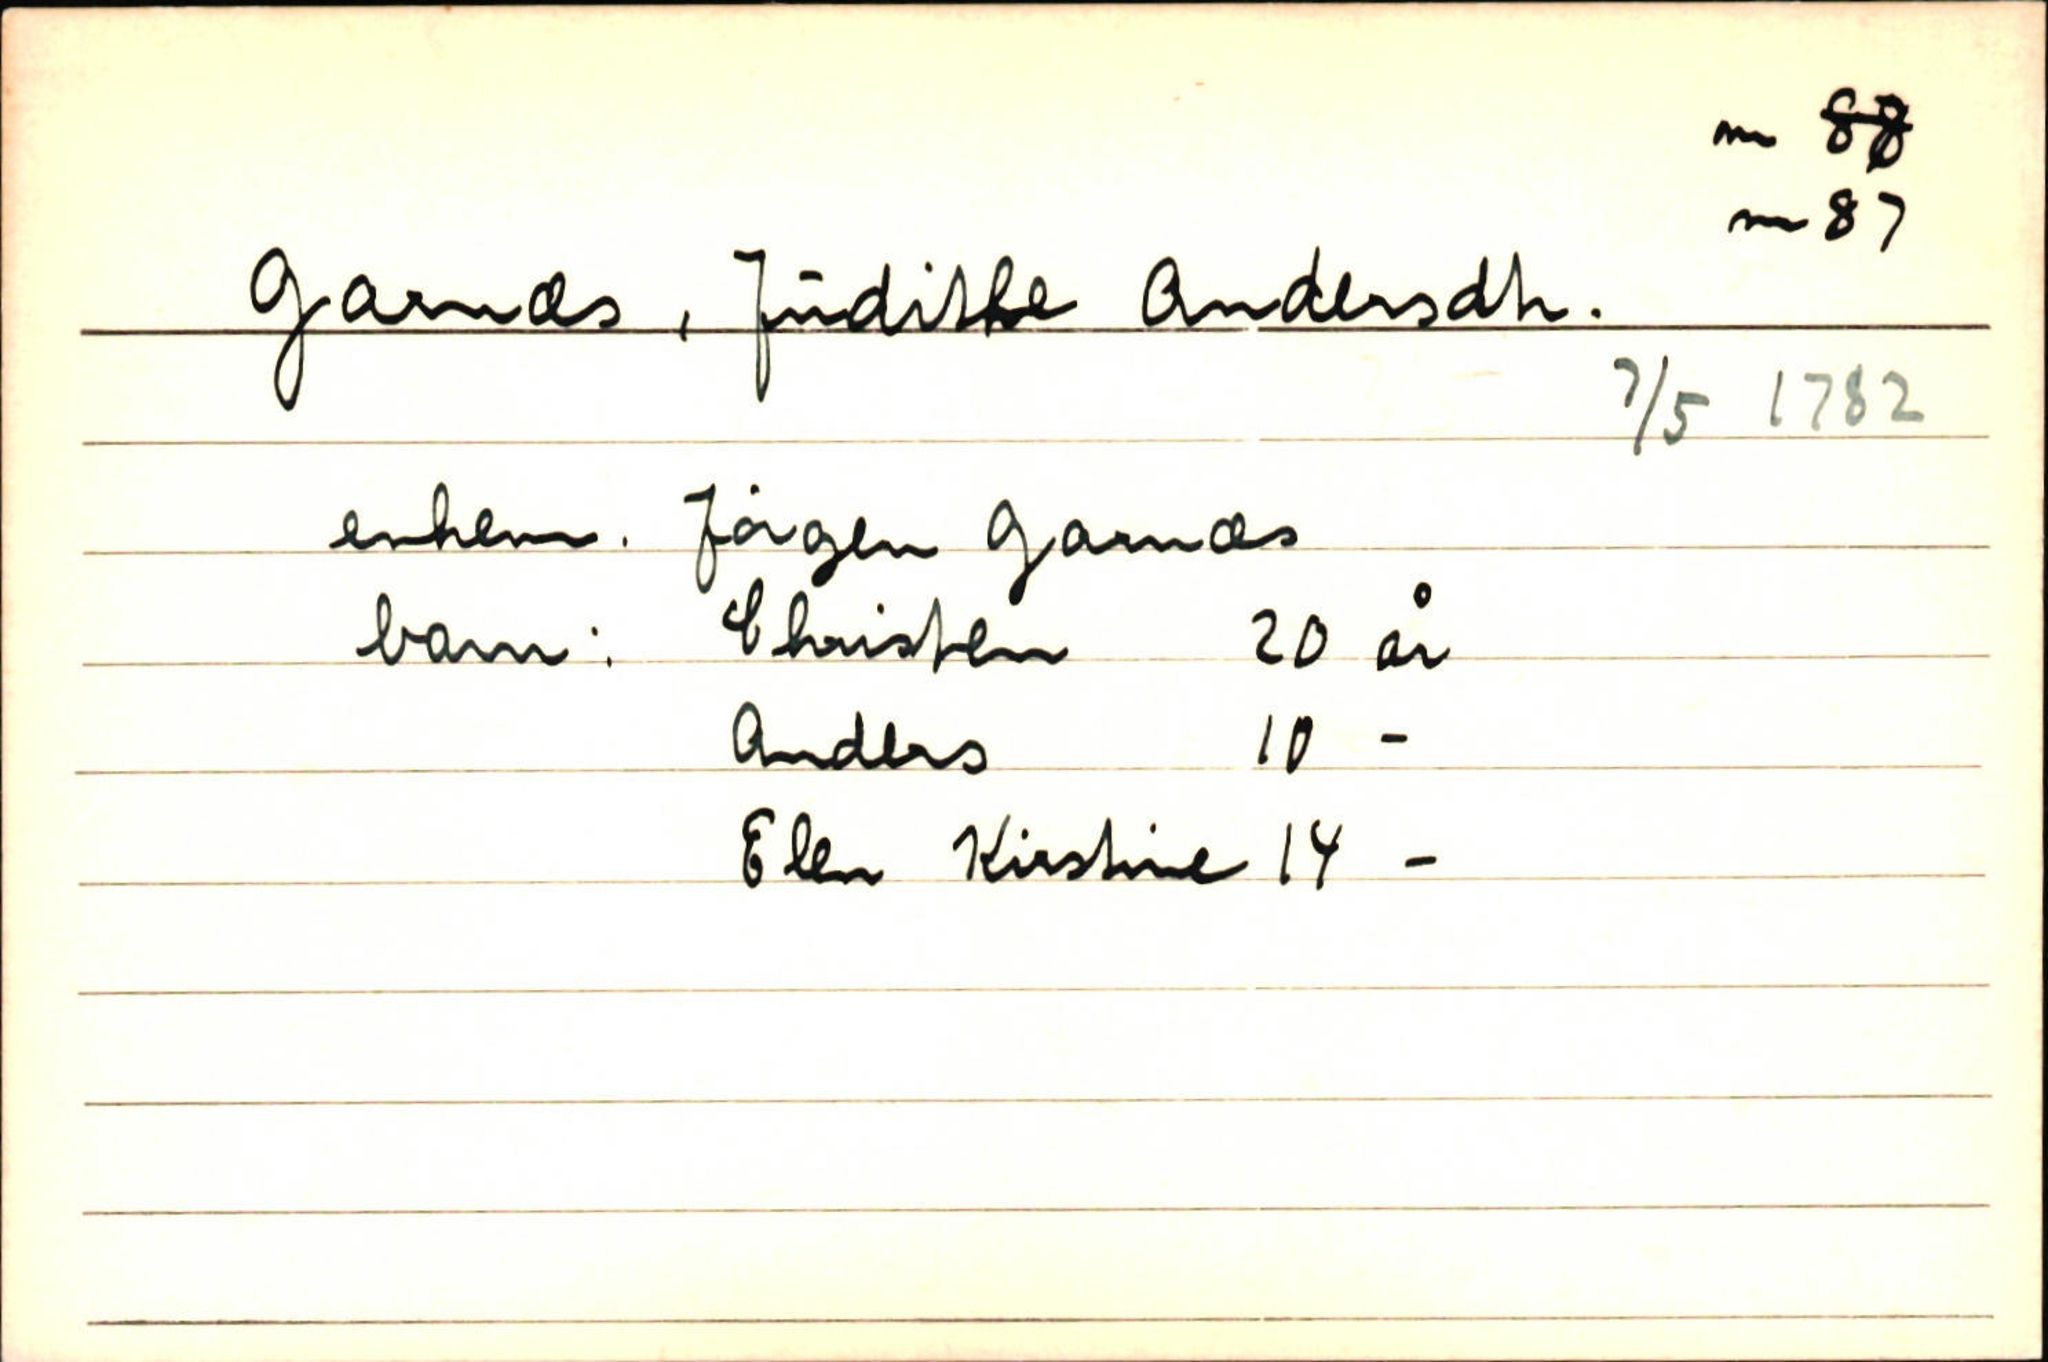 nr 88
nr 87
Garnæs, Judithe Andersdtr.
7/5 1782
enkem. Jörgen Garnæs
barn: Christen 20 år
Anders 10 -
Elen Kirstine 14 -